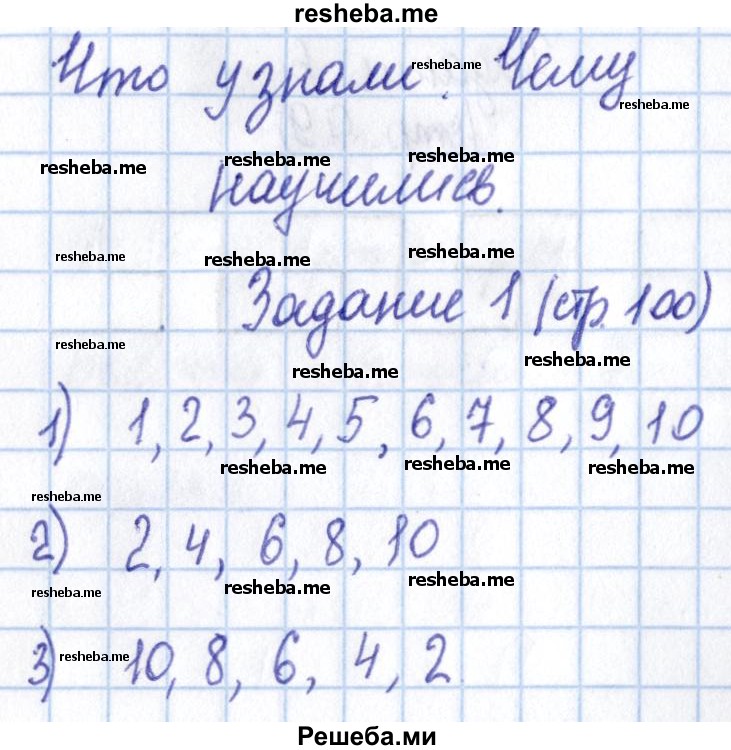 resheba.me
Что узнали. Чему
resheba.me
resheba.me
resheba.me resheba.me resheba.me
научились.
resheba.me resheba.me resheba.me
Задание 1 (стр. 100)
resheba.me resheba.me resheba.me
1) 1, 2, 3, 4, 5, 6, 7, 8, 9, 10
resheba.me resheba.me resheba.me
resheba.me
2) 2, 4, 6, 8, 10
resheba.me resheba.me resheba.me
3) resheba.me 10, 8, 6, 4, 2
Решеба.ми